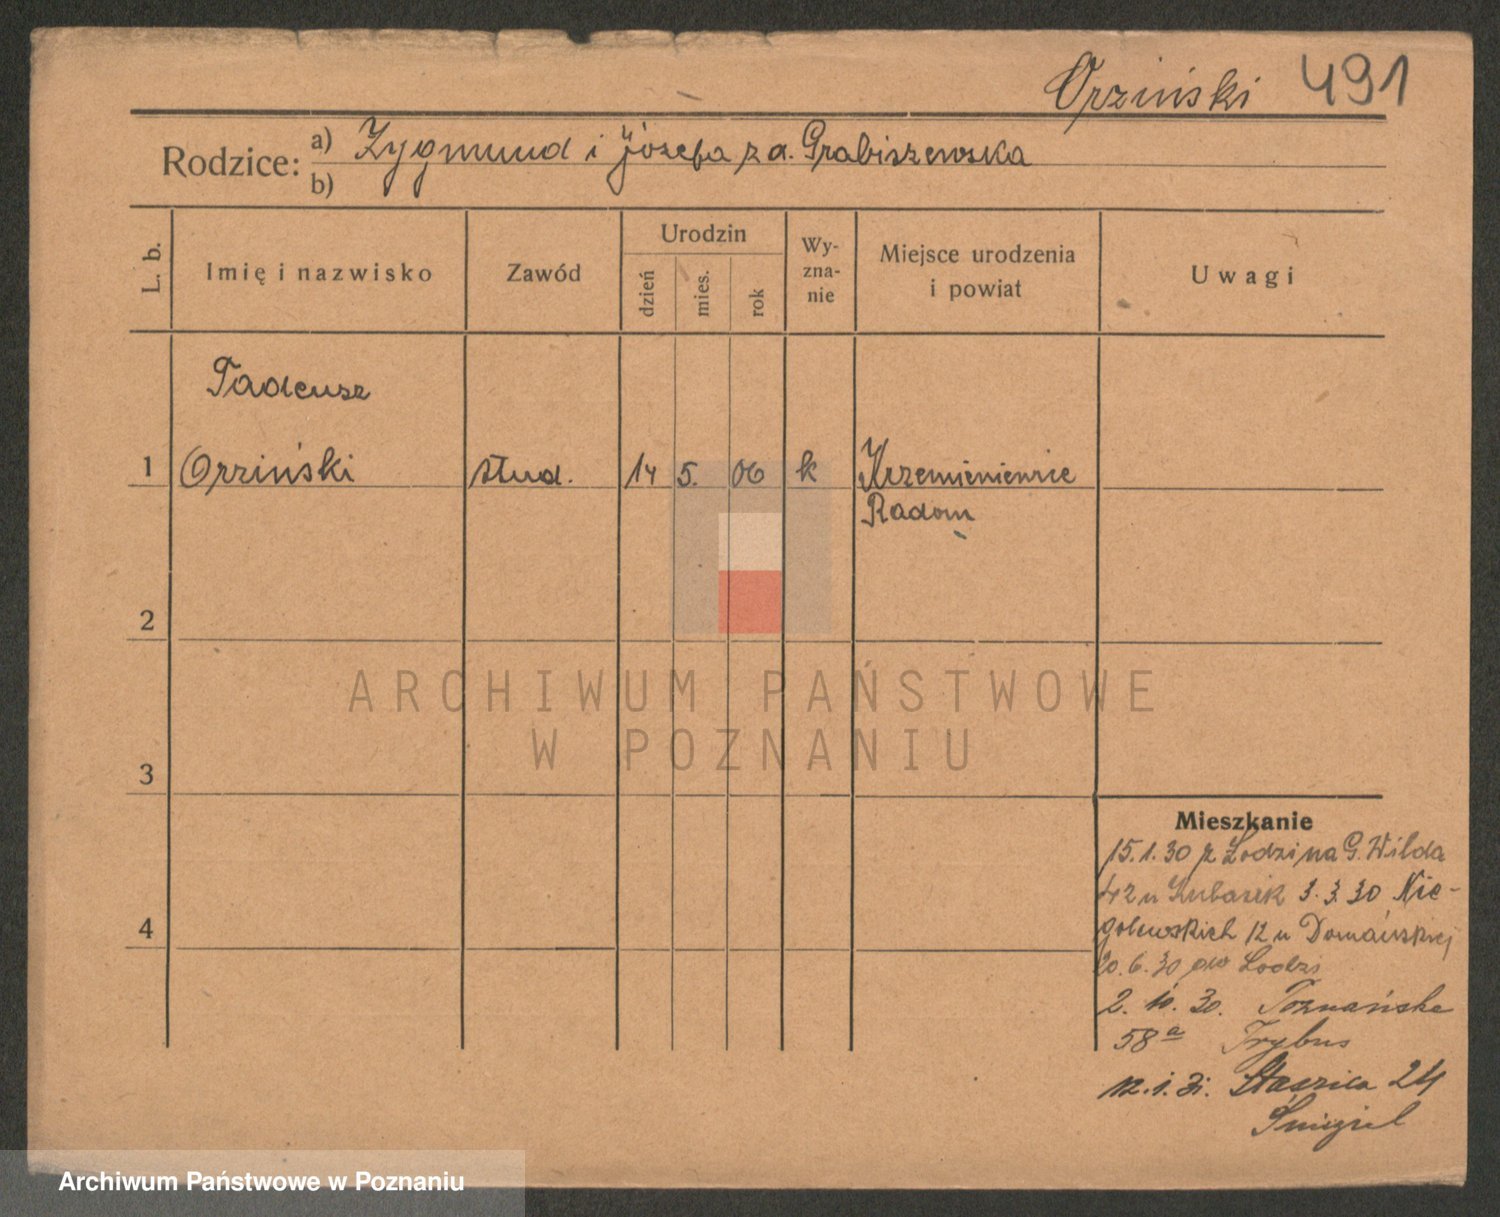 Orziński 491
Rodzice: a) Zygmund i Józefa z d. Grabiszewska
b)
L. b. Imię i nazwisko Zawód Urodzin dzień mies. rok Wy-zna-nie Miejsce urodzenia i powiat Uwagi
Tadeusz
1 Orziński stud. 14 5. 06 k Krzemieniewie
Radom
2
ARCHIWUM PAŃSTWOWE
W POZNANIU
3
Mieszkanie
15.1.30 z Łodzi na G. Wilda
42 u Kubasik 3.3.30 Nie-
4
golewskich 12 u Domańskiej
20.6.30 do Łodzi
2.10.30. Poznańska
58a Trybus
12.1.31. Staszica 24
Śmigiel
Archiwum Państwowe w Poznaniu